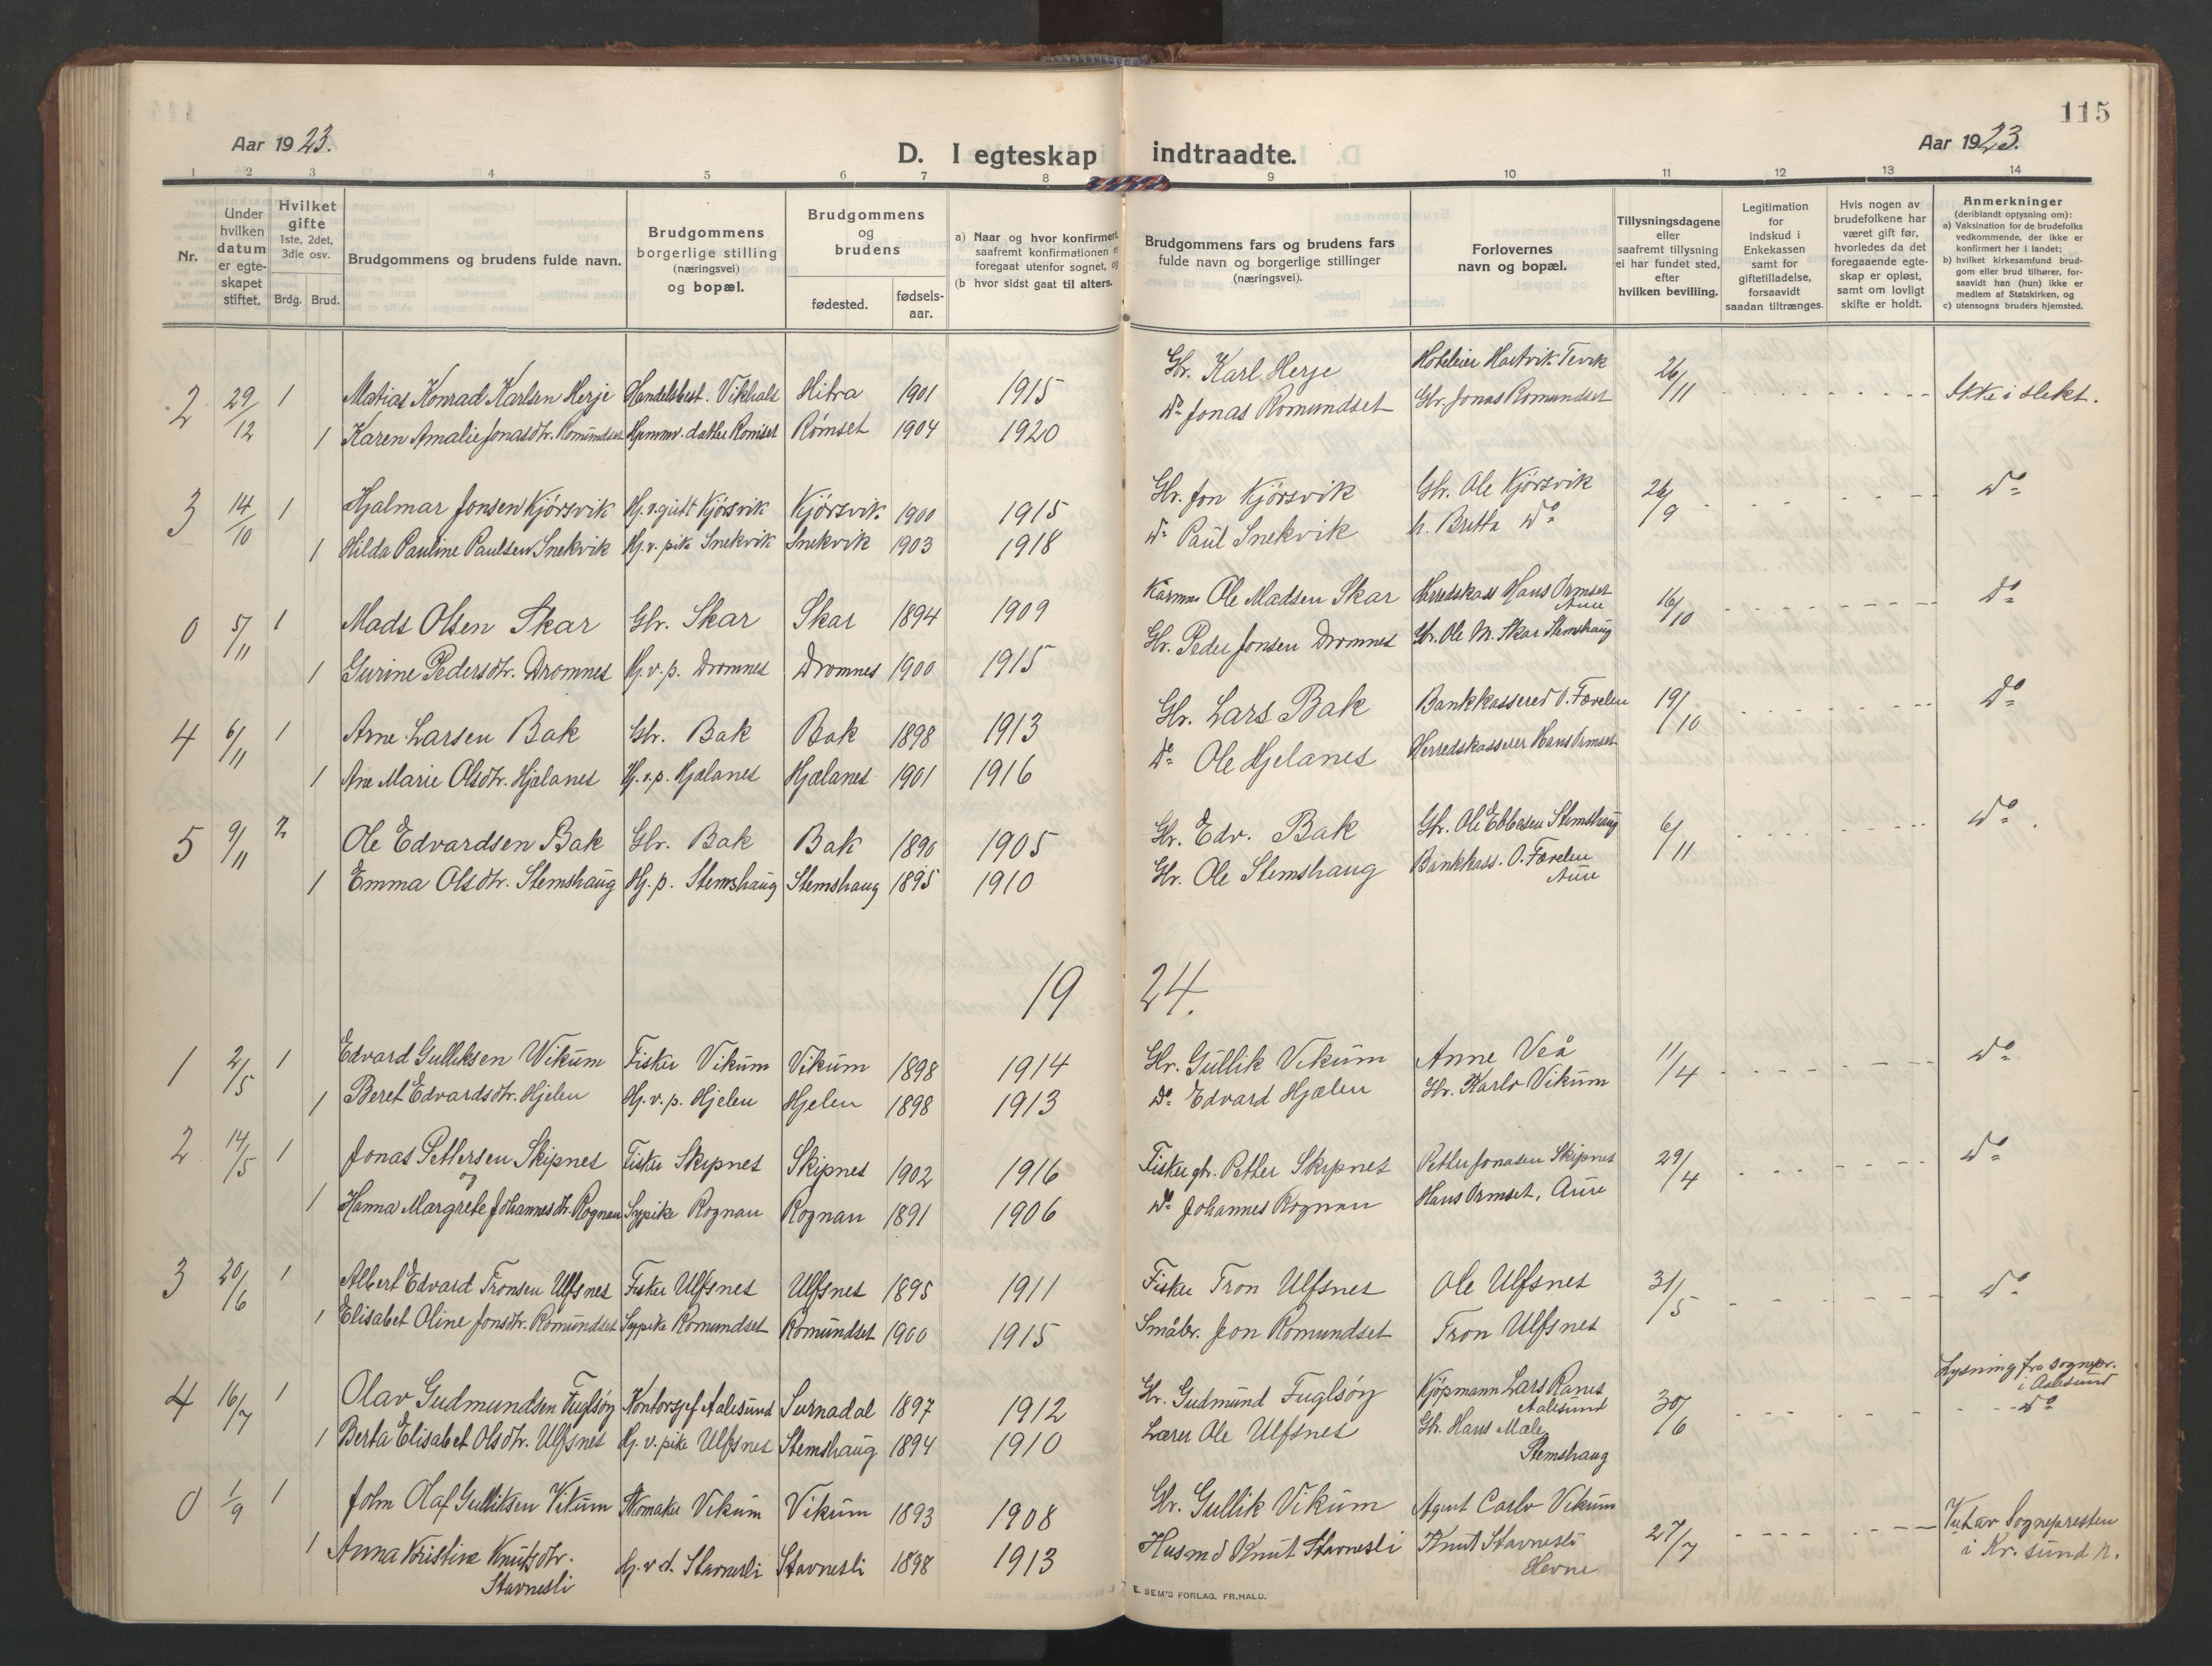 115
Aar 1923.
D. I egteskap indtraadte.
Aar 1923.
1 2 3 4 5 6 7 8 9 10 11 12 13 14
Nr.
Under hvilken datum er egteskapet stiftet.
Hvilket gifte 1ste, 2det, 3die osv.
Brdg. Brud.
Brudgommens og brudens fulde navn.
Brudgommens borgerlige stilling (næringsvei) og bopæl.
Brudgommens og brudens
fødested. fødsels-aar.
a) Naar og hvor konfirmert, saafremt konfirmationen er foregaat utenfor sognet, og
(b hvor sidst gaat til alters.
Brudgommens fars og brudens fars fulde navn og borgerlige stillinger (næringsvei).
Forlovernes navn og bopæl.
Tillysningsdagene eller saafremt tillysning ei har fundet sted, efter hvilken bevilling.
Legitimation for indskud i Enkekassen samt for giftetilladelse, forsaavidt saadan tiltrænges.
Hvis nogen av brudefolkene har været gift før, hvorledes da det foregaaende egteskap er opløst, samt om lovligt skifte er holdt.
Anmerkninger (deriblandt oplysning om):
a) Vaksination for de brudefolks vedkommende, der ikke er konfirmert her i landet;
b) hvilket kirkesamfund brudgom eller brud tilhører, forsaavidt han (hun) ikke er medlem af Statskirken, og
c) utensogns bruders hjemsted.
2 29/12 1 Matias Konrad Karlsen Herje Handelsbest. Vikhals Hitra 1901 1915 Gbr. Karl Herje Hoteleier Hartvik Tevik 26/11 Ikke i slekt.
1 Karen Amalie Jonasdtr. Romundset Hjemmv. datter Romset Romset 1904 1920 do Jonas Romundset Gbr. Jonas Romundset
3 14/10 1 Hjalmar Jonsen Kjørsvik Hj. v. gutt Kjørsvik Kjørsvik 1900 1915 Gbr. Jon Kjørsvik Gbr. Ole Kjørsvik 26/9 do
1 Hilda Pauline Paulsen Snekvik Hj. v. pike Snekvik Snekvik 1903 1918 do Paul Snekvik h. Britta do
0 5/11 1 Mads Olsen Skar Gbr. Skar Skar 1894 1909 Kårmn. Ole Madsen Skar Herredskass Hans Ormset Aure 16/10 do
1 Gurine Pedersdtr. Dromnes Hj. v. p. Dromnes Dromnes 1900 1915 Gbr. Peder Jonsen Dromnes Gbr. Ole M. Skar Stemshaug
4 6/11 1 Arne Larsen Bak Gbr. Bak Bak 1898 1913 Gbr. Lars Bak Bankkasserer O. Forelen 19/10 do
1 Ane Marie Olsdtr. Hjelanes Hj. v. p. Hjælanes Hjælanes 1901 1916 do Ole Hjelanes Herredskasserer Hans Ormset
5 9/11 2 Ole Edvardsen Bak Gbr. Bak Bak 1890 1905 Gbr. Edv. Bak Gbr. Ole Ebbesen Stemshaug 6/11 do
1 Emma Olsdtr. Stemshaug Hj. p. Stemshaug Stemshaug 1895 1910 Gbr. Ole Stemshaug Bankkass. O. Forelen Aure
1924.
1 2/5 1 Edvard Gulliksen Vikum Fisker Vikum Vikum 1898 1914 Gbr. Gullik Vikum Anne Veå 11/4 do
1 Beret Edvardsdtr. Hjelen Hj. v. p. Hjelen Hjelen 1898 1913 do Edvard Hjælen Gbr. Karlo Vikum
2 14/5 1 Jonas Pettersen Skipnes Fisker Skipnes Skipnes 1902 1916 Fisker gbr. Petter Skipnes Petter Jonasen Skipnes 29/4 do
og
1 Hanna Margrete Johannesdtr. Rognan Sypike Rognan Rognan 1891 1906 do Johannes Rognan Hans Ormset, Aure
3 20/6 1 Albert Edvard Tronsen Ulfsnes Fisker Ulfsnes Ulfsnes 1895 1911 Fisker Tron Ulfsnes Ole Ulfsnes 31/5 do
1 Elisabet Oline Jonsdtr. Romundset Sypike Romundset Romundset 1900 1915 Småbr. Jon Romundset Tron Ulfsnes
4 16/7 1 Olav Gudmundsen Fuglsøy Kontorsjef Aalesund Surnadal 1897 1912 Gbr. Gudmund Fuglsøy Kjøpmann Lars Ranes Aalesund 30/6 Lysning fra sognepr. i Aalesund do
1 Berta Elisabet Olsdtr. Ulfsnes Hj. v. pike Ulfsnes Stemshaug 1894 1910 Lærer Ole Ulfsnes Gbr. Hans Mæle Stemshaug
0 1/9 1 John Olaf Gulliksen Vikum Skomaker Vikum Vikum 1893 1908 Gbr. Gullik Vikum Agent Carlo Vikum 27/7 Viet av Sognepresten i Kr. sund N.
1 Anna Kristine Knutsdtr. Stavnesli Hj. v. d. Stavnesli Stavnesli 1898 1913 Husmd Knut Stavnesli Knut Stavnesli Hevne
E. SEM'S FORLAG, FR.HALD.